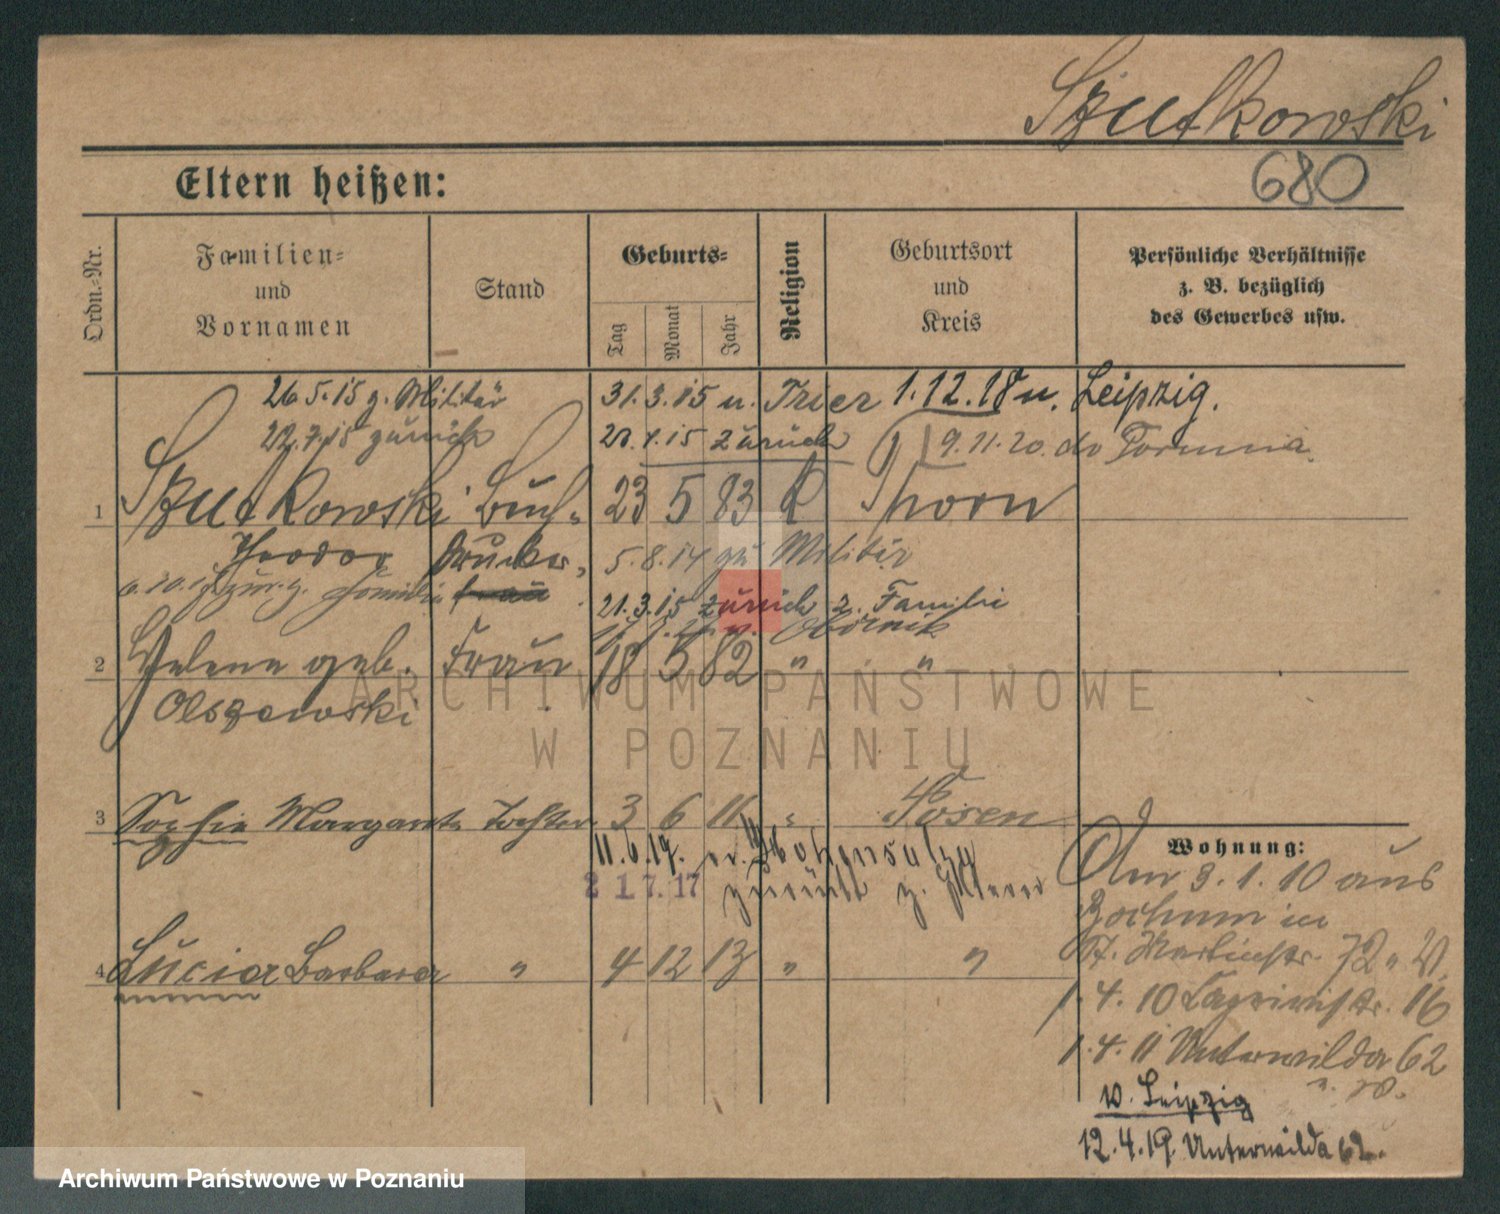 Szutkowski
680
Eltern heißen:
Ordn.-Nr.
Familien-
und
Vornamen
Stand
Geburts-
Tag
Monat
Jahr
Religion
Geburtsort
und
Kreis
Persönliche Verhältnisse
z. B. bezüglich
des Gewerbes usw.
26.5.15 z. Militär
31.3.15 u. Trier 1.12.18 u. Leipzig.
22.7.15 zurück
zurück
9.11.20.
1
Szutkowski
Buch-
23 5 83
K
Thorn
Theodor
drucker
5.8.14 zu Militär
Familie
21.3.15 zurück z. Familie
Obornik
2
Helene geb.
Frau
18 5 82 " "
Olszewski
3
Sophie Margarete
Tochter
3 6 11 "
Posen
11.6.17. Hohensalza
2 1 7. 17
zurück z. Eltern
4
Lucia Barbara
"
4 12 13 " "
Wohnung:
Am 3.1.10 aus
Bochum in
St. Martinstr. 72
1.4.10 16
1.4.11 Unterwilda 62
v. Leipzig
12.4.19. Unterwilda 62.
ARCHIWUM PAŃSTWOWE
W POZNANIU
Archiwum Państwowe w Poznaniu